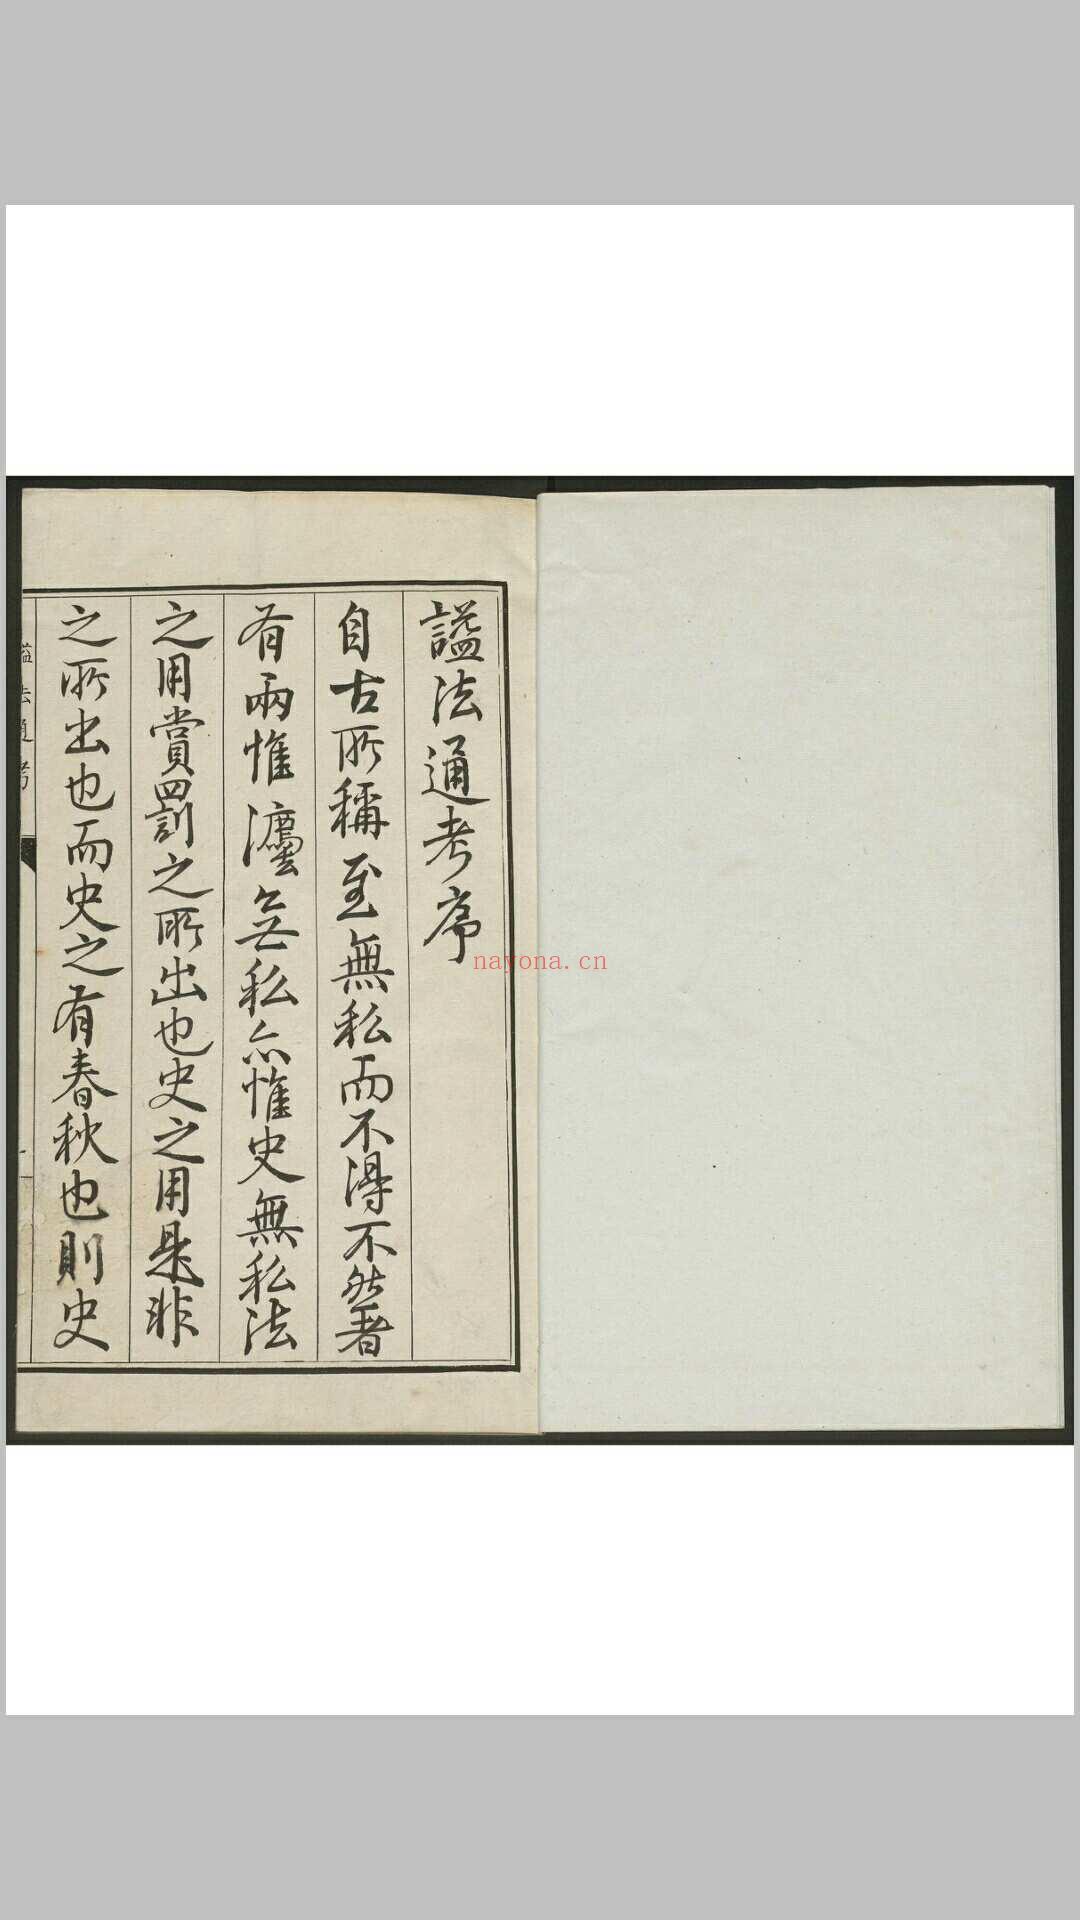 謚法通考序
自古所稱至無私而不得不然者
有兩惟灋無私亦惟史無私法
之用賞罰之所出也史之用是非
之所出也而史之有春秋也則史
謚法通考
nayona.cn